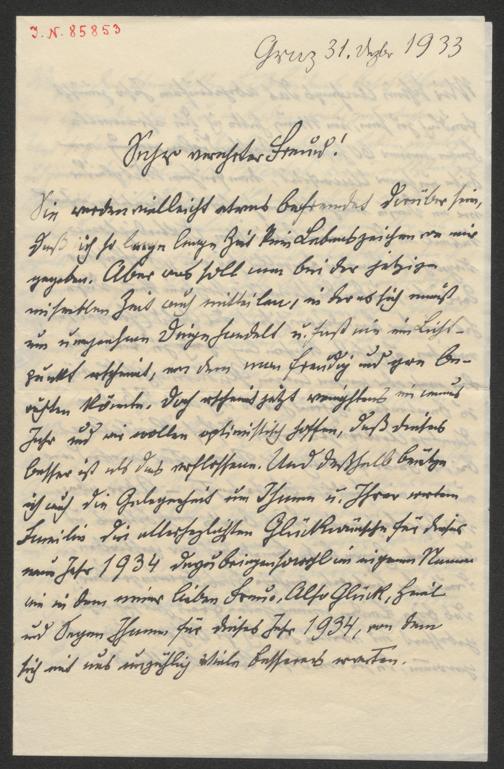 J. N. 85853
Graz 31. Dezbr 1933
Sehr verehrter Freund!
Sie werden vielleicht etwas befremdet darüber sein,
daß ich so lange lange Zeit kein Lebenszeichen von mir
gegeben. Aber was soll man bei der jetzigen
miserablen Zeit auch mitteilen, in der es sich meist
um unangenehme Dinge handelt u. fast nie ein Licht-
punkt erscheint, von dem man freudig und gern be-
richten könnte. Doch erscheint jetzt wenigstens ein neues
Jahr und wir wollen optimistisch hoffen, daß dieses
besser ist als das verflossene. Und deßhalb benütze
ich auch die Gelegenheit um Ihnen u. Ihrer werten
Familie die allerherzlichsten Glückwünsche für dieses
neue Jahr 1934 darzubringen sowohl in eigenem Namen
wie in dem meiner lieben Frau. Also Glück, Heil
und Segen Ihnen für dieses Jahr 1934, von dem
sich mit uns unzählig viele besseres erwarten.